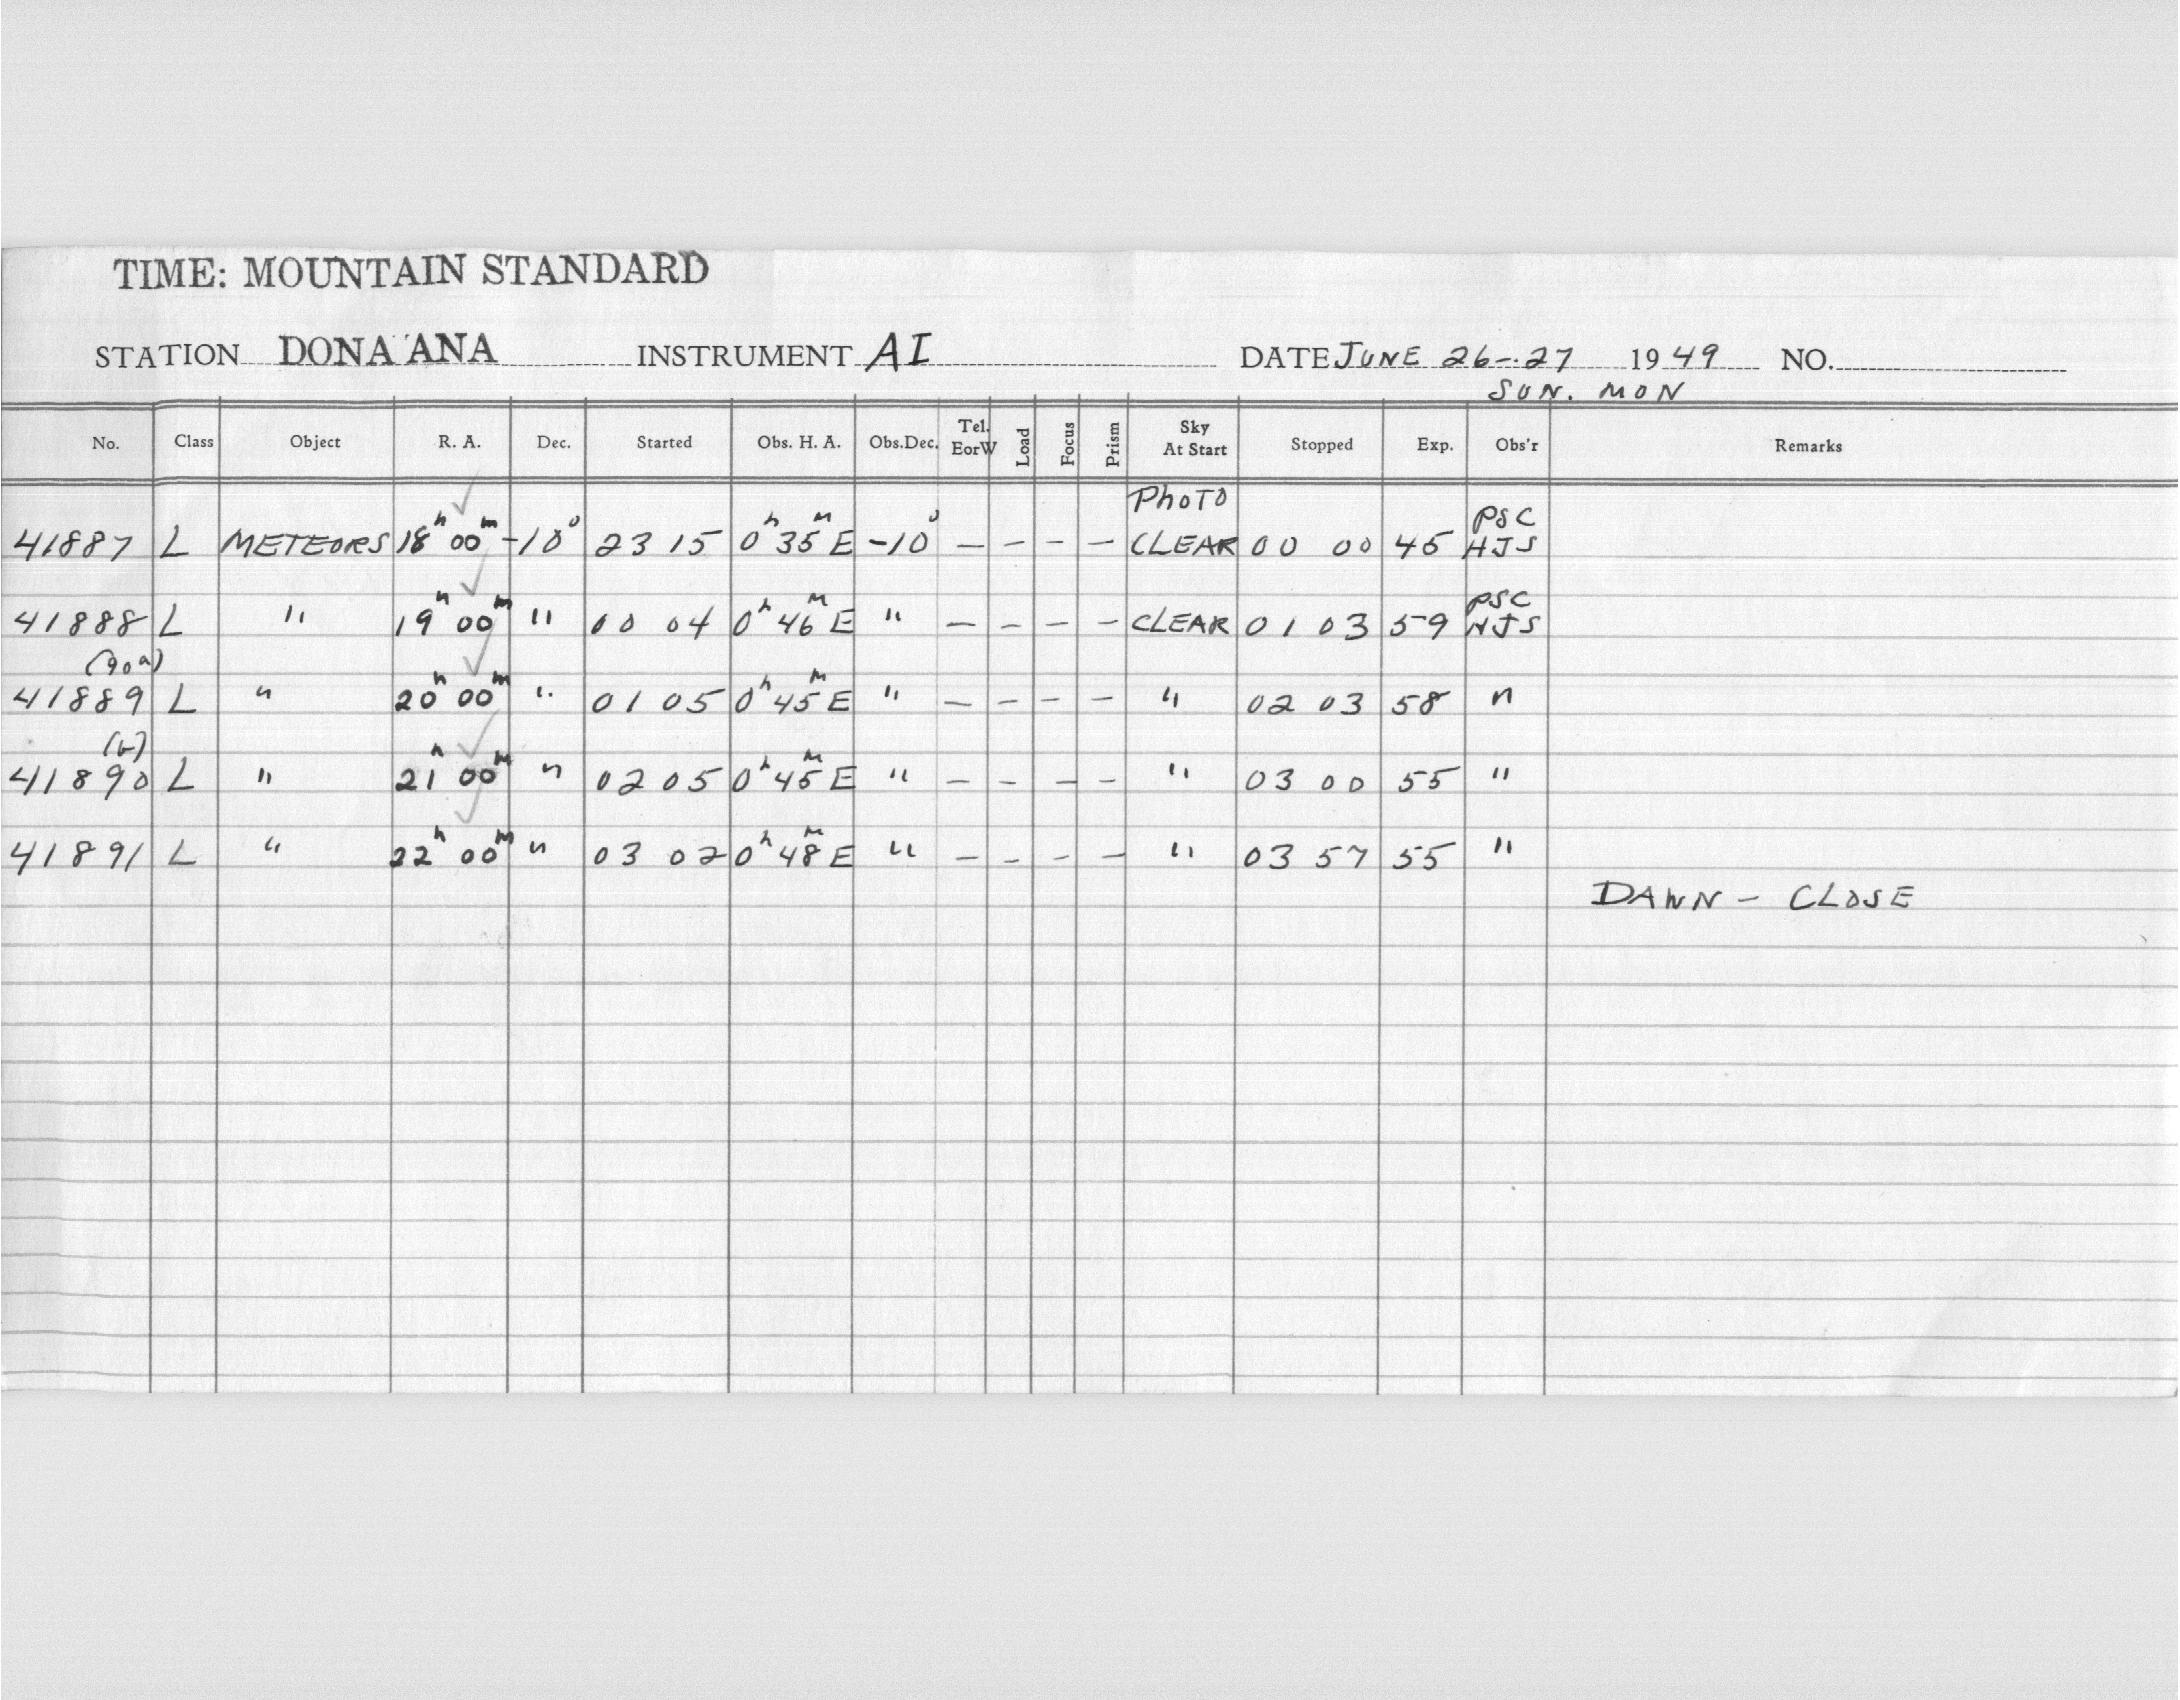 TIME: MOUNTAIN STANDARD
STATION DONA ANA INSTRUMENT AI DATE JUNE 26-27 1949 NO.
SUN. MON
No. Class Object R. A. Dec. Started Obs. H. A. Obs.Dec. Tel. EorW Load Focus Prism Sky At Start Stopped Exp. Obs'r Remarks
PHOTO PSC
41887 L METEORS 18h 00m -10° 23 15 0h 35M E -10° — – – – CLEAR 00 00 45 HJS
PSC
41888 L " 19h 00m " 00 04 0h 46M E " — – – – CLEAR 01 03 59 HJS
(90a)
41889 L " 20h 00m " 01 05 0h 45M E " — – – – " 02 03 58 "
(b)
41890 L " 21h 00M " 02 05 0h 45M E " – – – – " 03 00 55 "
41891 L " 22h 00M " 03 02 0h 48M E " – – – — " 03 57 55 "
DAWN – CLOSE